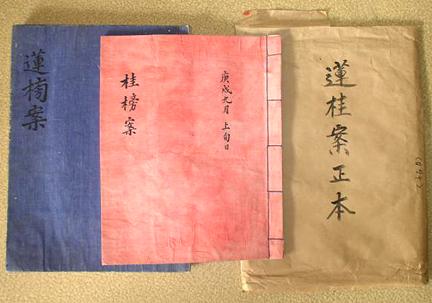 蓮榜案
桂榜案
庚戌九月 上旬日
蓮桂案正本